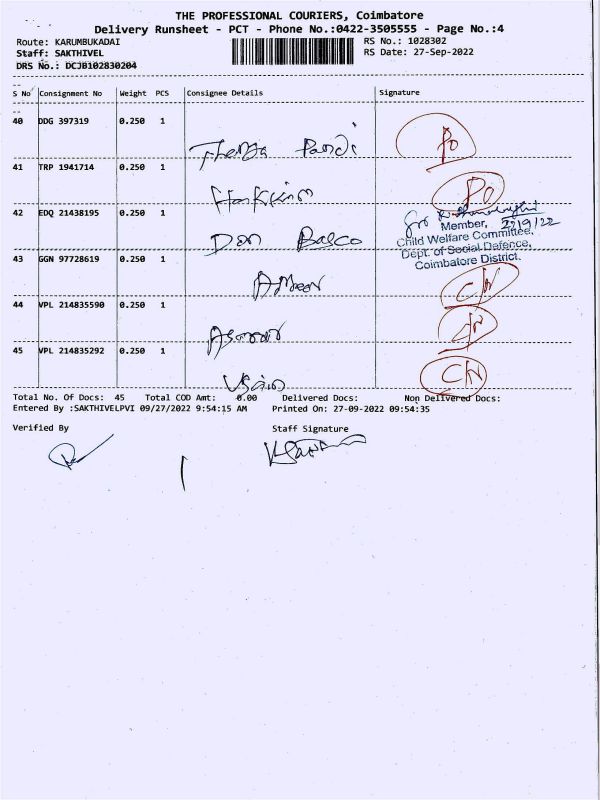 THE PROFESSIONAL COURIERS, Coimbatore
Delivery Runsheet - PCT - Phone No.:0422-3505555 - Page No.:4
Route: KARUMBUKADAI RS No.: 1028302
Staff: SAKTHIVEL RS Date: 27-Sep-2022
DRS No.: DCJ0102830204
S No Consignment No Weight PCS Consignee Details Signature
40 DDG 397319 0.250 1
Pandi PO
41 TRP 1941714 0.250 1
PO
42 EDQ 21438195 0.250 1
Don Basco
Member, 27/9/22
Child Welfare Committee,
Dept. of Social Defence,
Coimbatore District.
43 GGN 97728619 0.250 1
Ameer CN
44 VPL 214835590 0.250 1
CN
45 VPL 214835292 0.250 1
CN
Total No. Of Docs: 45 Total COD Amt: 0.00 Delivered Docs: Non Delivered Docs:
Entered By :SAKTHIVELPVI 09/27/2022 9:54:15 AM Printed On: 27-09-2022 09:54:35
Verified By Staff Signature